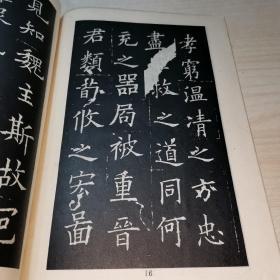 孝窮温清之方忠
盡救之道同何
充之器局被重晉
君類荀攸之宏啚
見知魏主斯故包
16